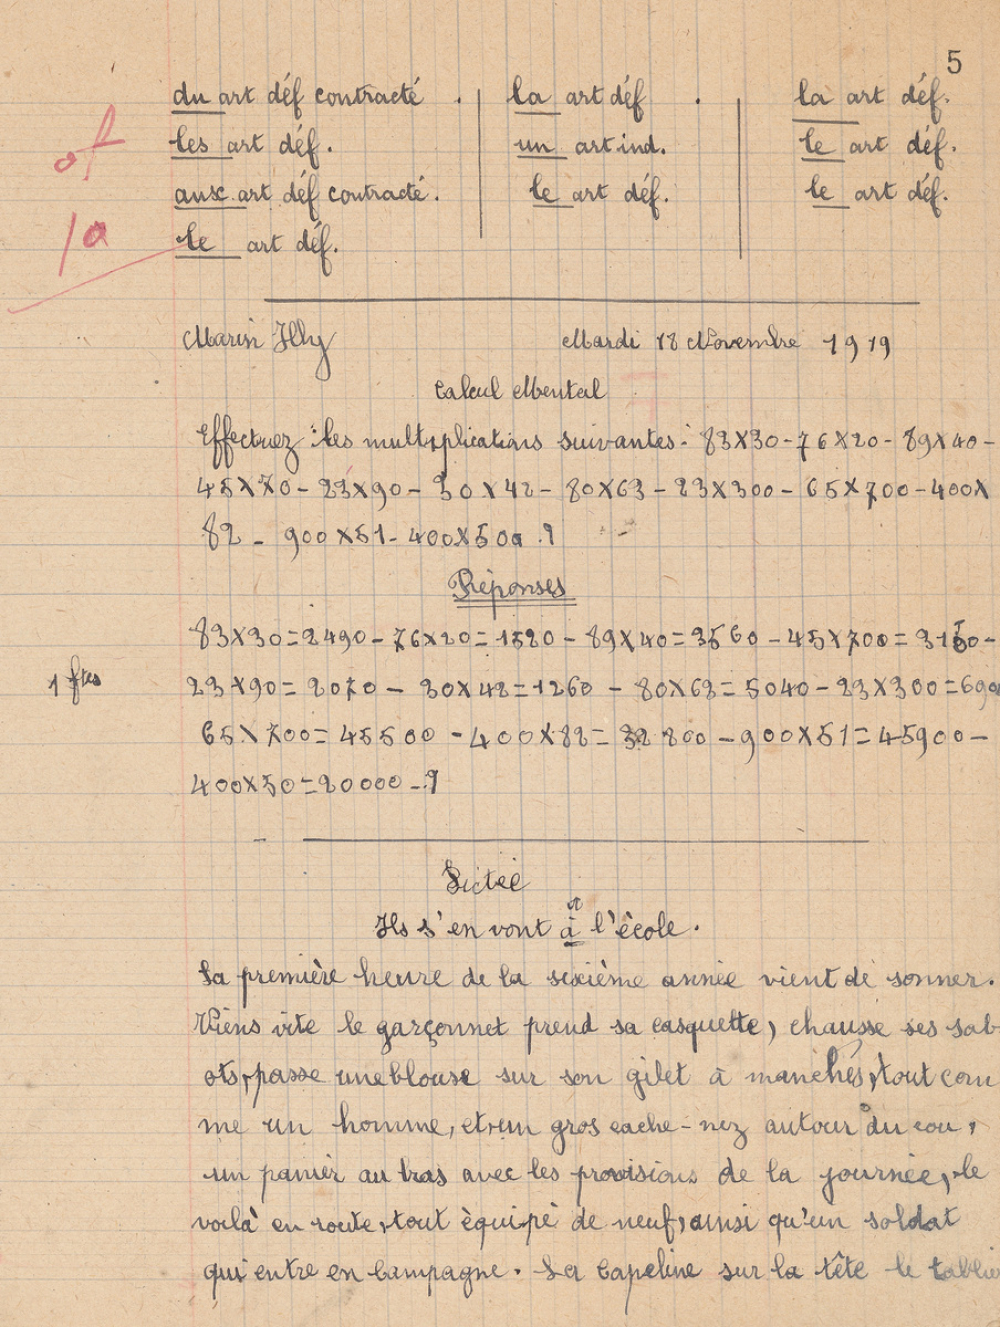 5
du art déf contracté . la art déf . la art déf.
les art déf. un art ind. le art déf.
aux art déf contracté. le art déf. le art déf.
le art déf.
10
Marin Illy Mardi 18 Novembre 1919
Calcul Mental
Effectuez les multiplications suivantes: 83X30-76X20-89X40-
45X70-23X90-30X42-80X63-23X300-65X700-400X
82 - 900X51-400X50
Réponses
83X30=2490-76X20=1520-89X40=3560-45X700=3150-
1 ftes
23X90=2070-30X42=1260-80X63=5040-23X300=690
65X700=45500-400X82=32800-900X51=45900-
400X50=20000-
Dictée
Ils s'en vont à l'école.
La première heure de la sixième année vient de sonner.
Viens vite le garçonnet prend sa casquette, chausse ses sab
ots, passe une blouse sur son gilet à manches, tout com
me un homme, et un gros cache-nez autour du cou,
un panier au bras avec les provisions de la journée, le
voilà en route, tout équipé de neuf, ainsi qu'un soldat
qui entre en campagne. La capeline sur la tête le tablier